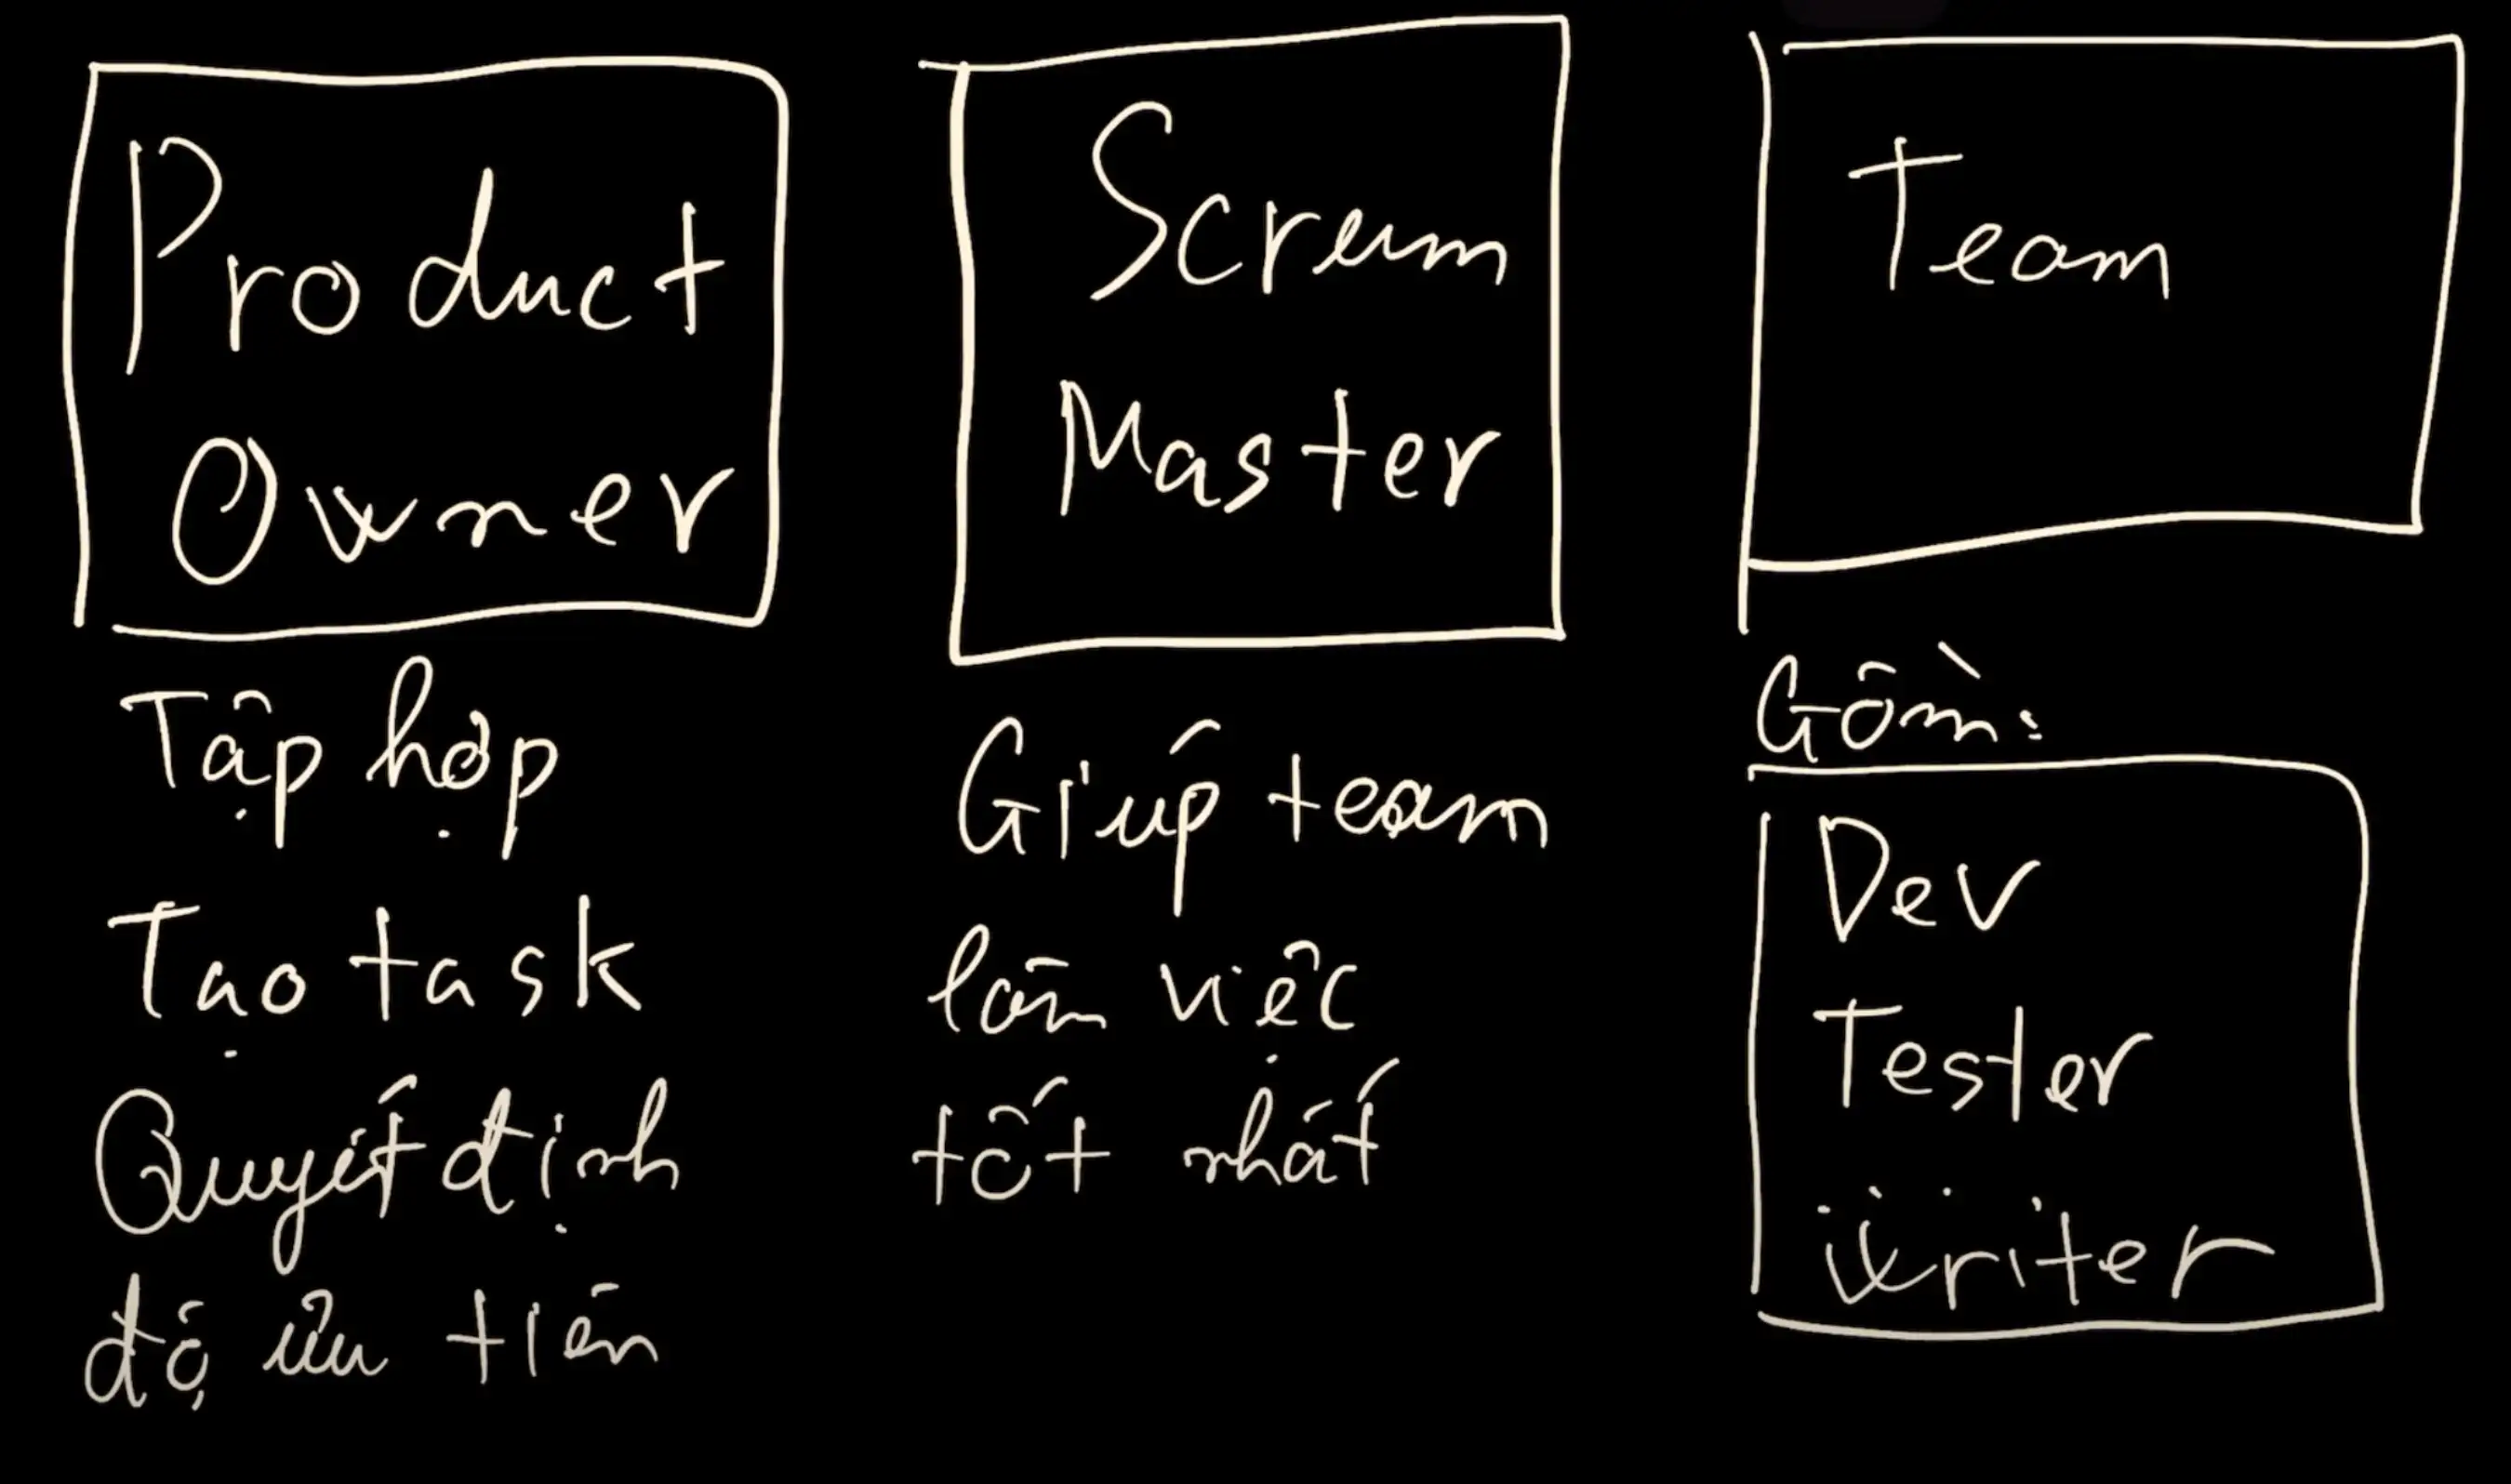 Product
Owner
Tập hợp
Tạo task
Quyết định
độ ưu tiên
Scrum
Master
Giúp team
làm việc
tốt nhất
Team
Gồm:
Dev
Tester
Writer